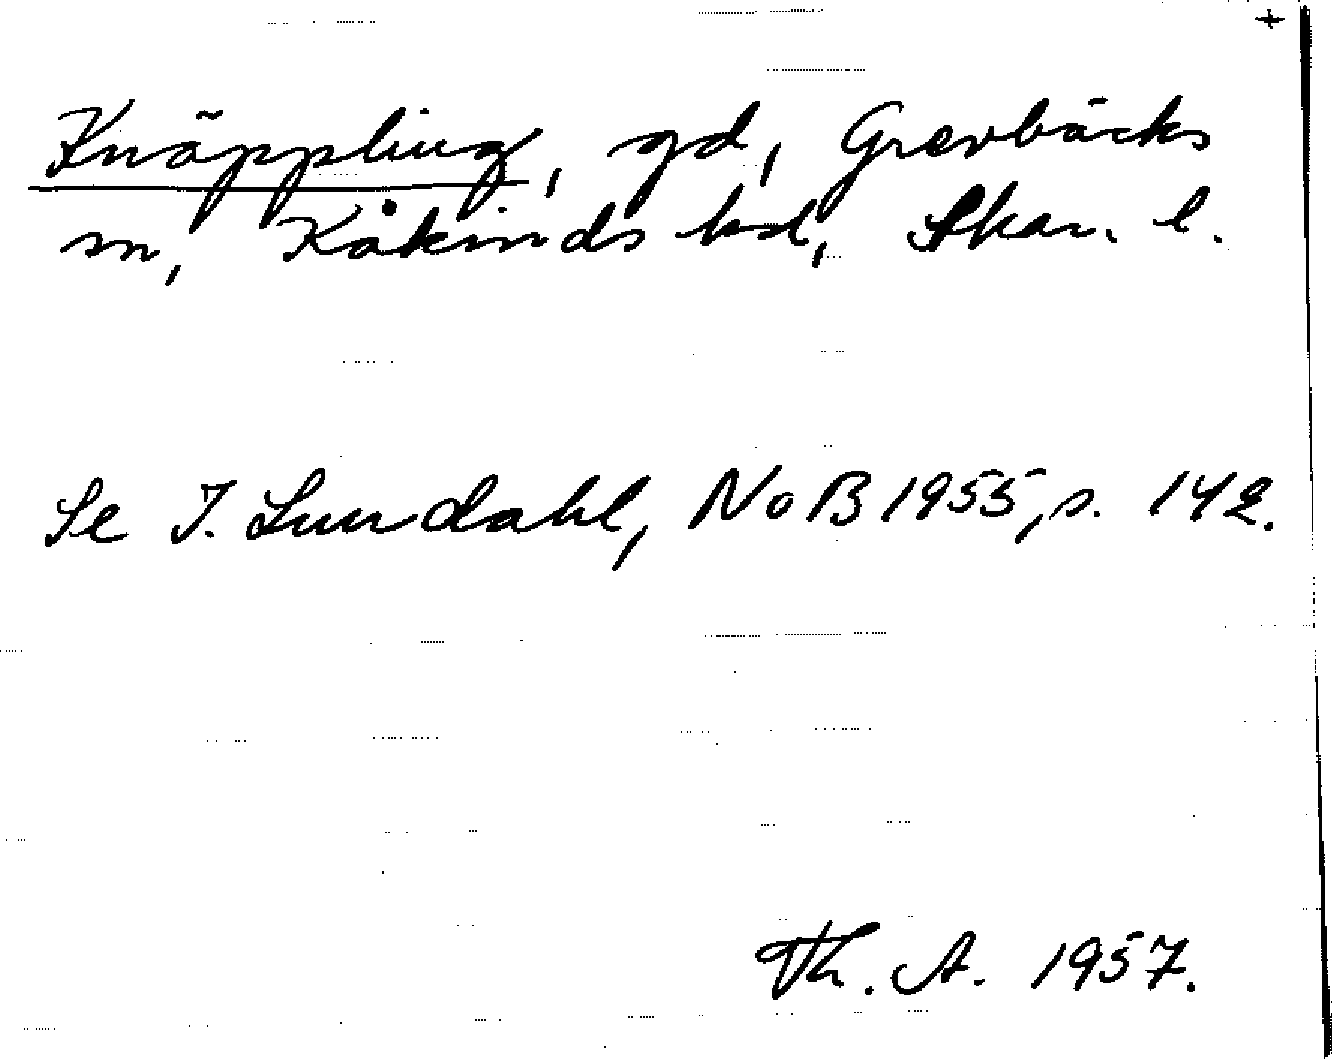 +
Knäppling, gd, Grevbäcks
sn, Kåkinds hd, Skar. l.
Se I. Lundahl, NoB 1955, s. 142.
Th. A. 1957.